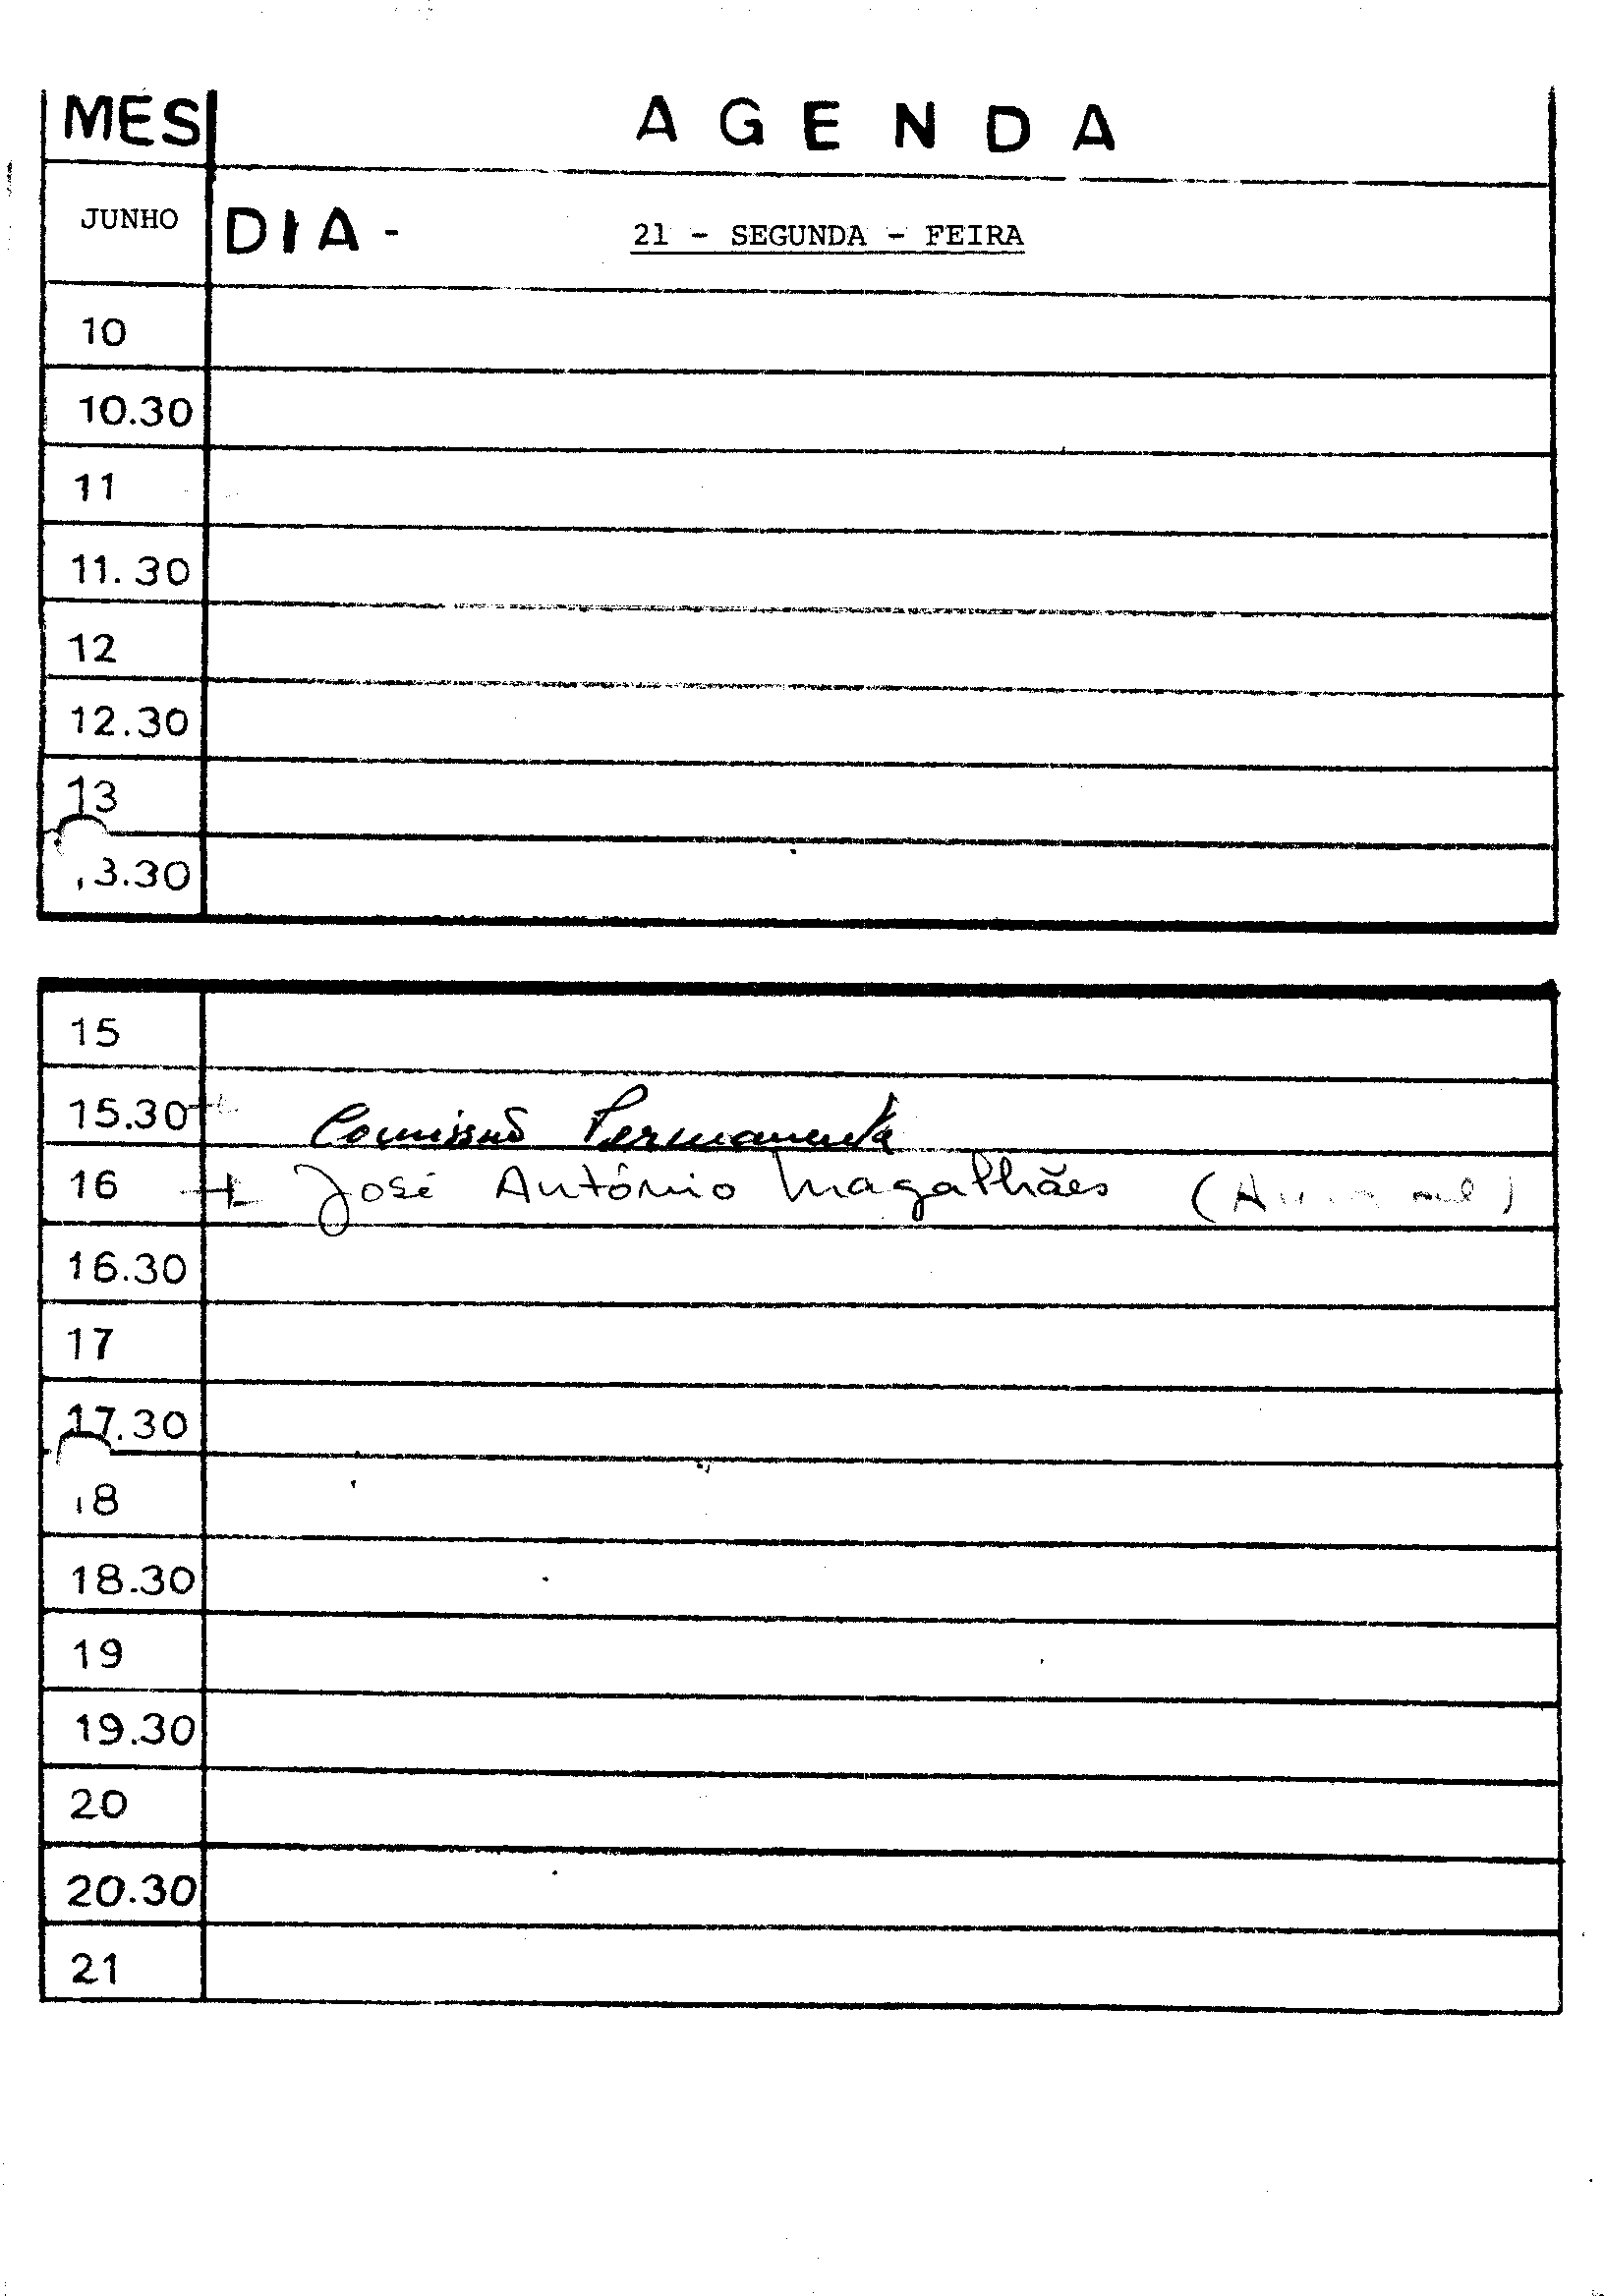 MÊS
A G E N D A
JUNHO
DIA -
21 - SEGUNDA - FEIRA
10
10.30
11
11.30
12
12.30
13
13.30
15
15.30 Comissão Permanente
16 José António Magalhães
16.30
17
17.30
18
18.30
19
19.30
20
20.30
21